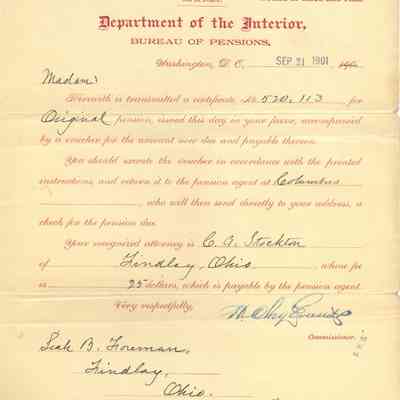 Department of the Interior,
BUREAU OF PENSIONS,
Washington, D. C., SEP 21 1901
Madam:
Herewith is transmitted a certificate, No. 520,113 for
Original pension, issued this day in your favor, accompanied
by a voucher for the amount now due and payable thereon.
You should execute the voucher in accordance with the printed
instructions, and return it to the pension agent at Columbus
, who will then send directly to your address, a
check for the pension due.
Your recognized attorney is C. A. Stockton
of Findlay, Ohio whose fee
is 25 dollars, which is payable by the pension agent.
Very respectfully,
Commissioner.
Leah B. Foreman,
Findlay,
Ohio.